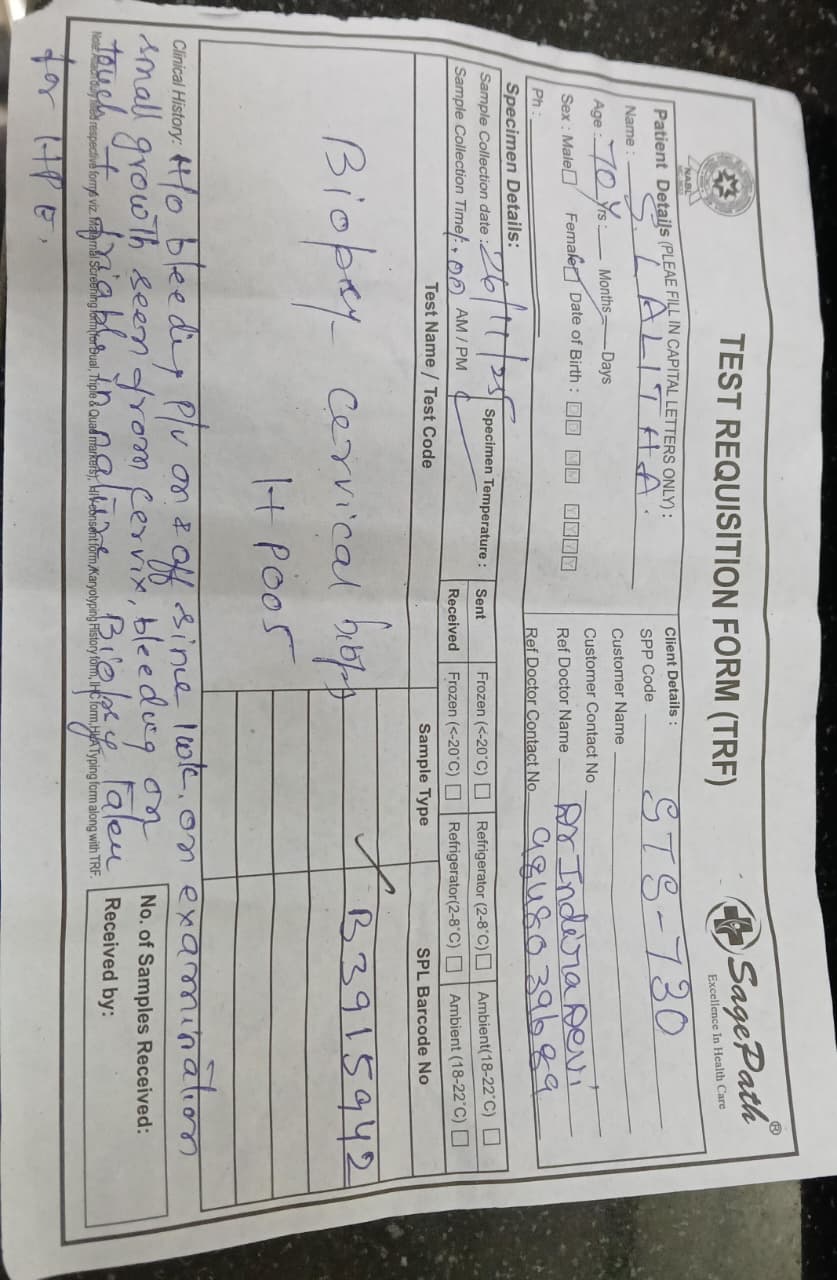 NABL
TEST REQUISITION FORM (TRF)
SagePath®
Excellence In Health Care
Patient Details (PLEAE FILL IN CAPITAL LETTERS ONLY) :
Name : S. LALITHA.
Age : 70 Y Yrs : Months Days
Sex : Male Female Date of Birth : D D M M Y Y Y Y
Ph :
Client Details :
SPP Code STS-730
Customer Name
Customer Contact No
Ref Doctor Name Dr Indira Devi
Ref Doctor Contact No 9848039689
Specimen Details:
Sample Collection date : 26/11/25 Specimen Temperature : Sent Frozen (<-20°C) Refrigerator (2-8°C) Ambient(18-22°C)
Sample Collection Time : .00 AM / PM Received Frozen (<-20°C) Refrigerator(2-8°C) Ambient (18-22°C)
Test Name / Test Code Sample Type SPL Barcode No
Biopsy - cervical biopsy B3915942
HP005
Clinical History: H/o bleeding P/v on & off since 1wk. on examination
small growth seen from cervix, bleeding on
touch + friable in nature Biopsy taken
for HPE.
Note: respective forms viz. Maternal Screening form(for Dual, Triple & Quad markers), HIV consent form, Karyotyping History form, IHC form, HLA Typing form along with TRF.
No. of Samples Received:
Received by: